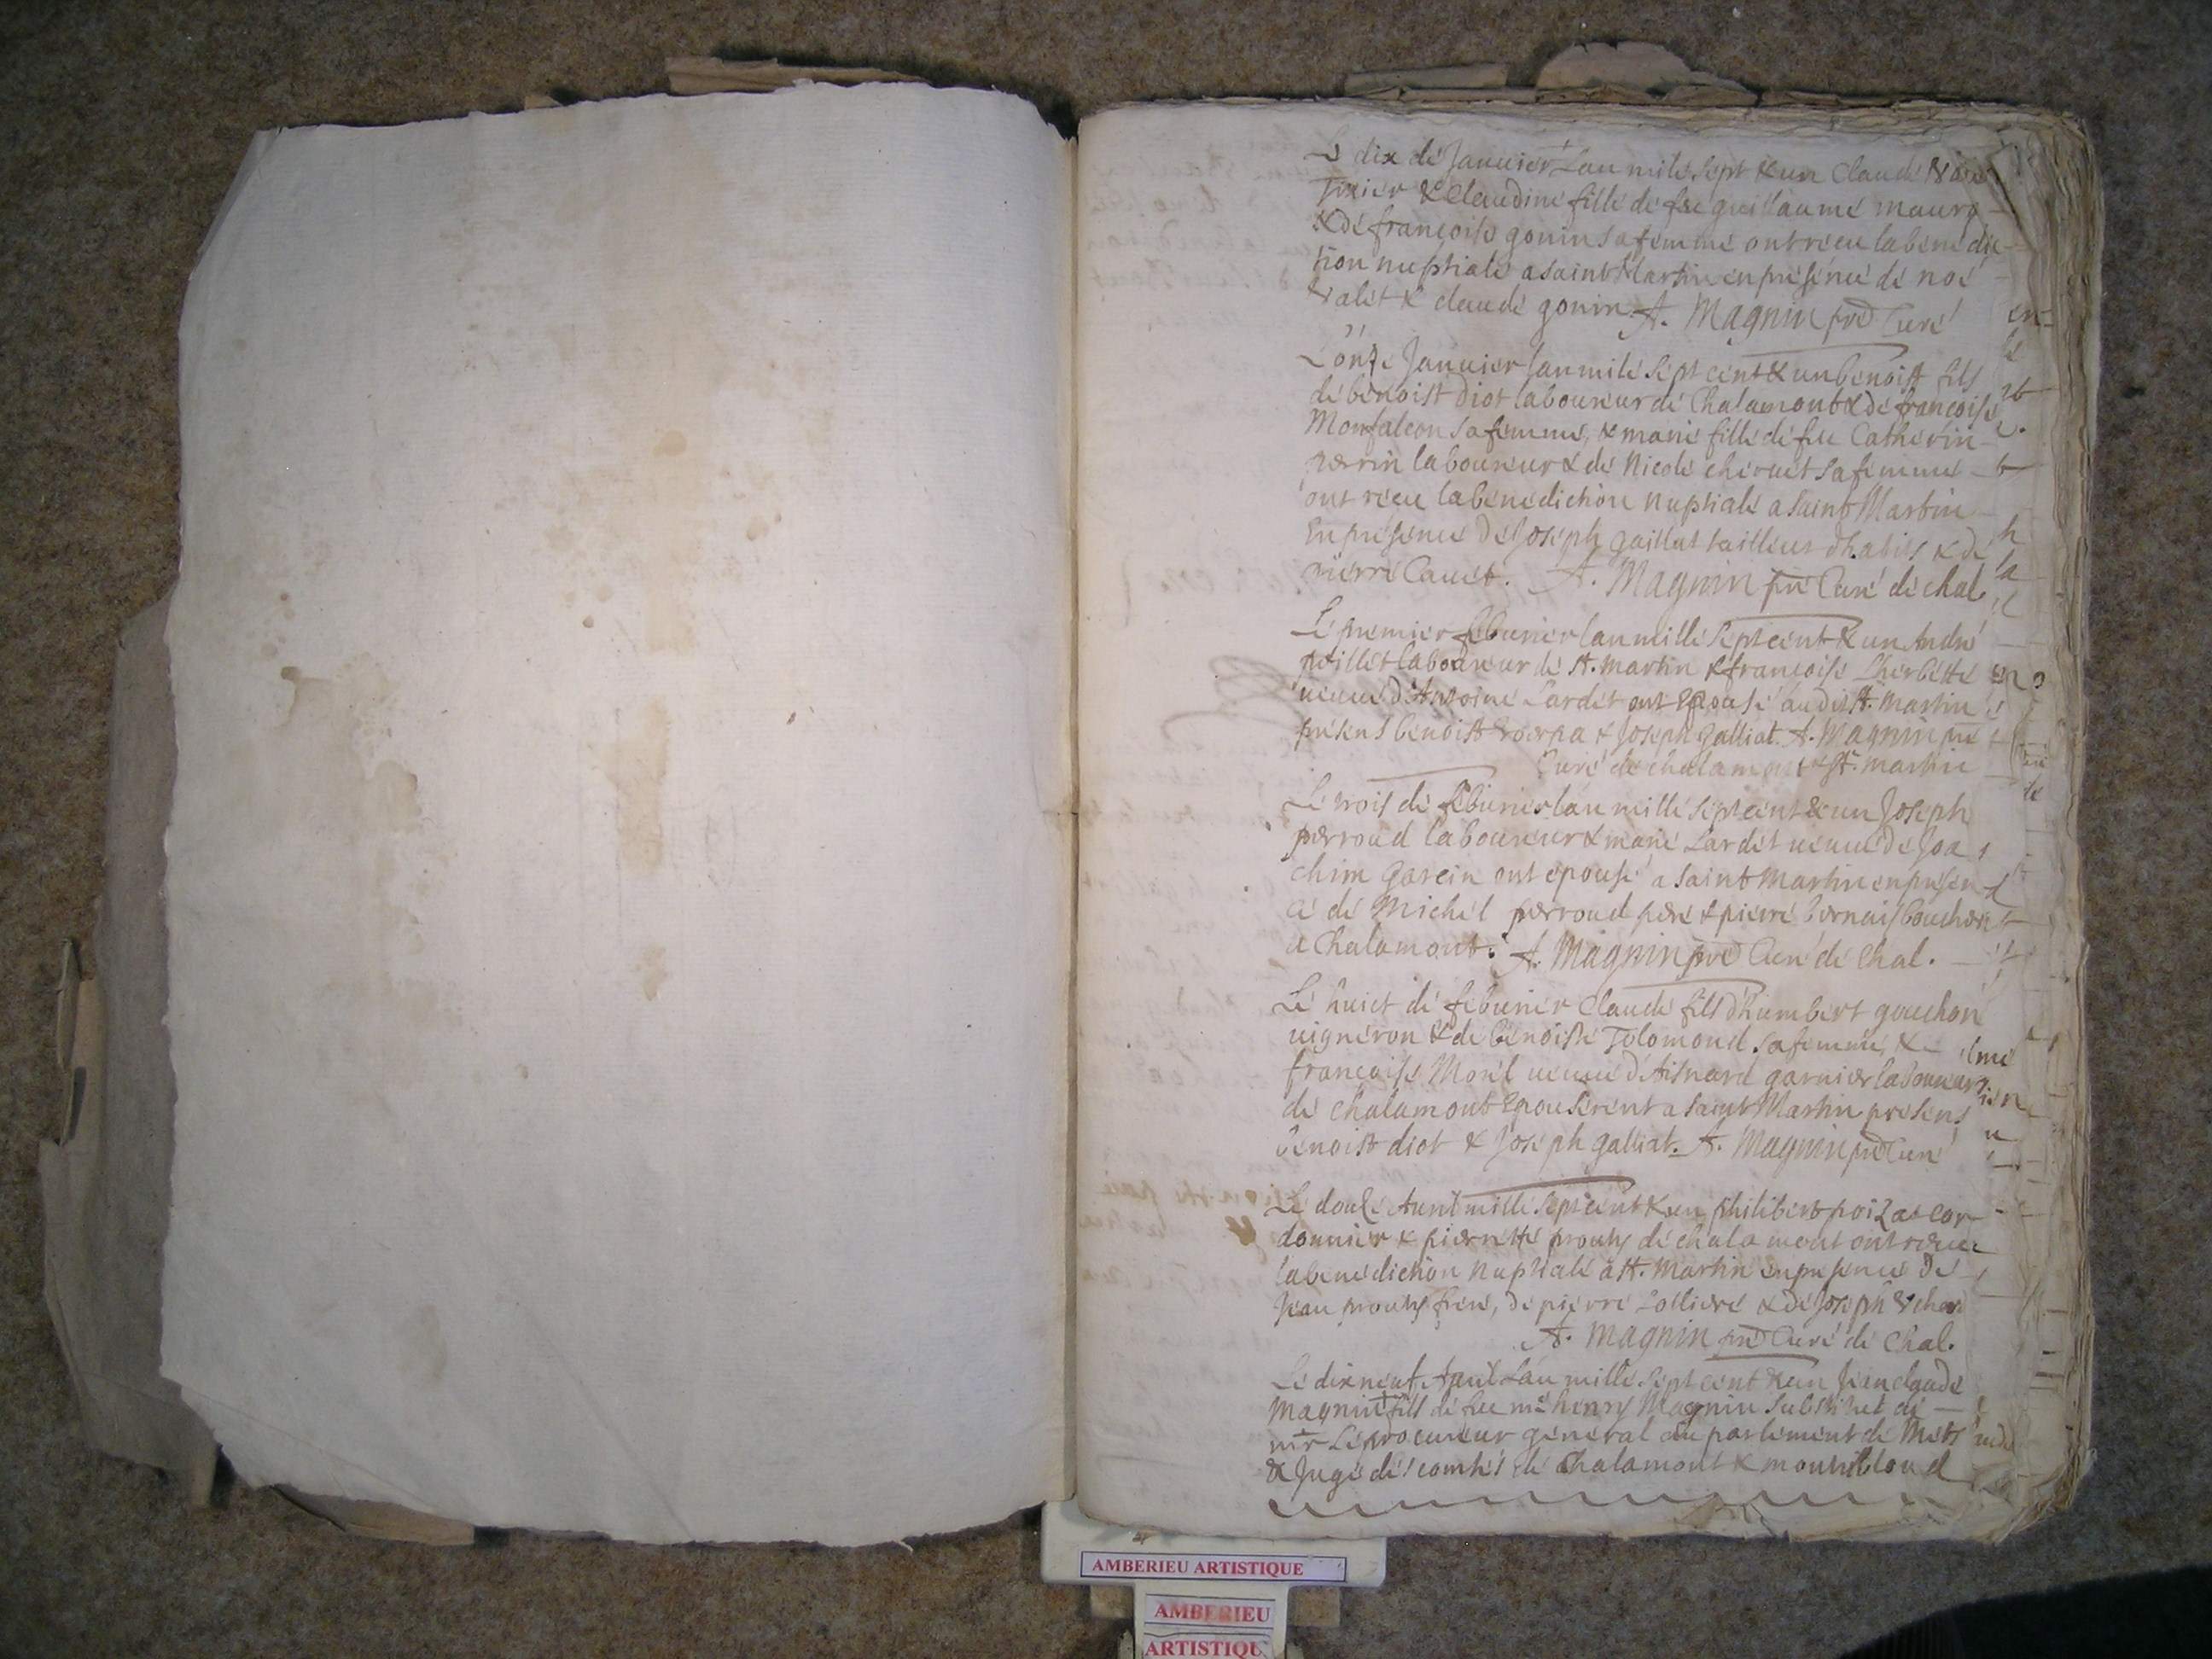 Le dix de Januier Lan mile sept & un Claude
Tixier & Claudine fille de feu guillaume maury
& de francoise gonin sa femme ont receu la benedic
tion nuptiale a saint Martin en presence de noe
Valet & claude gonin. A. Magnin pre Curé
L'onze Januier lan mile sept cent & un benoist fils
de benoist diot laboureur de Chalamont & de francoise
Monfalcon sa femme, & marie fille de feu Catherin
perrin laboureur & de Nicole cheruet sa femme
ont receu la benediction nuptiale a saint Martin
En presence de Joseph gaillat tailleur dhabits & de
pierre Cauet. A. Magnin pre Curé de chal.
Le premier feburier lan mille sept cent & un Andre
poillet laboureur de st. martin & francoise Lherbette
ueuue d'Antoine Lardet ont Epousé audit st. Martin
présens benoist & Joseph galliat. A. Magnin pre
Curé de chalamont & st. martin
Le trois de feburier lan mille sept cent & un Joseph
perroud laboureur & marie Lardet ueuue de Joa
chim Garcin ont epousé a saint Martin en presen
ce de Michel perroud pere & pierre bernais boucher
a Chalamont. A. Magnin pre Curé de Chal.
Le huict de feburier Claude fils d'humbert gouchon
uigneron & de benoiste Tolomond sa femme, &
francoise Morel ueuue d'Aisnard garnier laboureur
de chalamont Epouserent a saint Martin presens
benoist diot & Joseph galliat. A. Magnin pre Curé
Le douze Auril mille sept cent & un philibert poizat cor
donnier & pierrette prouts de chalamont ont receu
la benediction nuptiale a st. Martin en presence de
Jean prouts frere, de pierre Lolliere & de Joseph
A. Magnin pre Curé de Chal.
Le dixneuf Auril Lan mille sept cent & un Jean claude
Magnin fils de feu me henry Magnin substitut de
mr Le procureur general au parlement de Mets
& Juge des comtés de Chalamont & montribloud
AMBERIEU ARTISTIQUE
AMBERIEU
ARTISTIQU